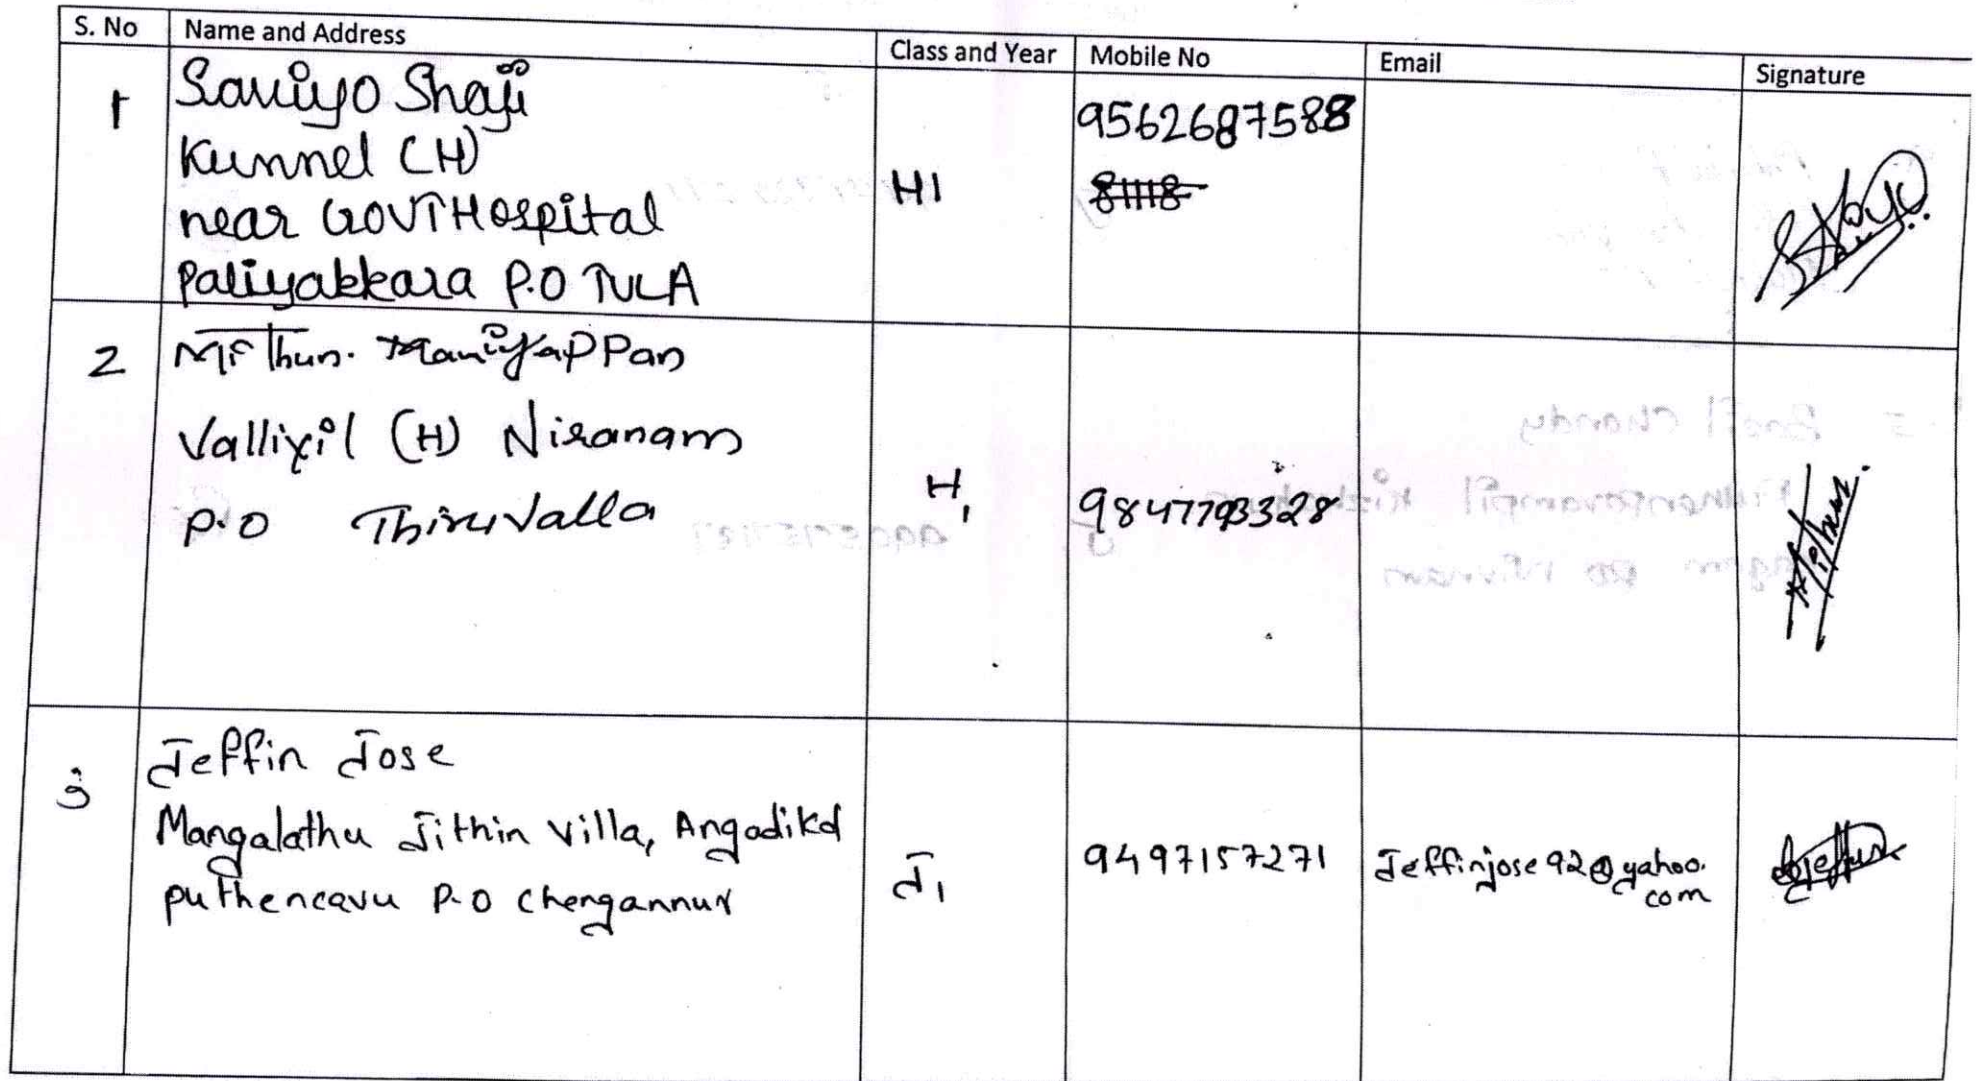 S. No Name and Address Class and Year Mobile No Email Signature
1 Saviyo Shaji
Kunnel (H)
near GOVT Hospital
Paliyakkara P.O TVLA
H1
9562687588
2 Mithun. Maniyappan
Valliyil (H) Niranam
P.O Thiruvalla
H1
9847793328
Mithun
3 Jeffin Jose
Mangalathu Jithin Villa, Angadikal
puthencavu P.O Chengannur
J1
9497157271
Jeffinjose92@yahoo.
com